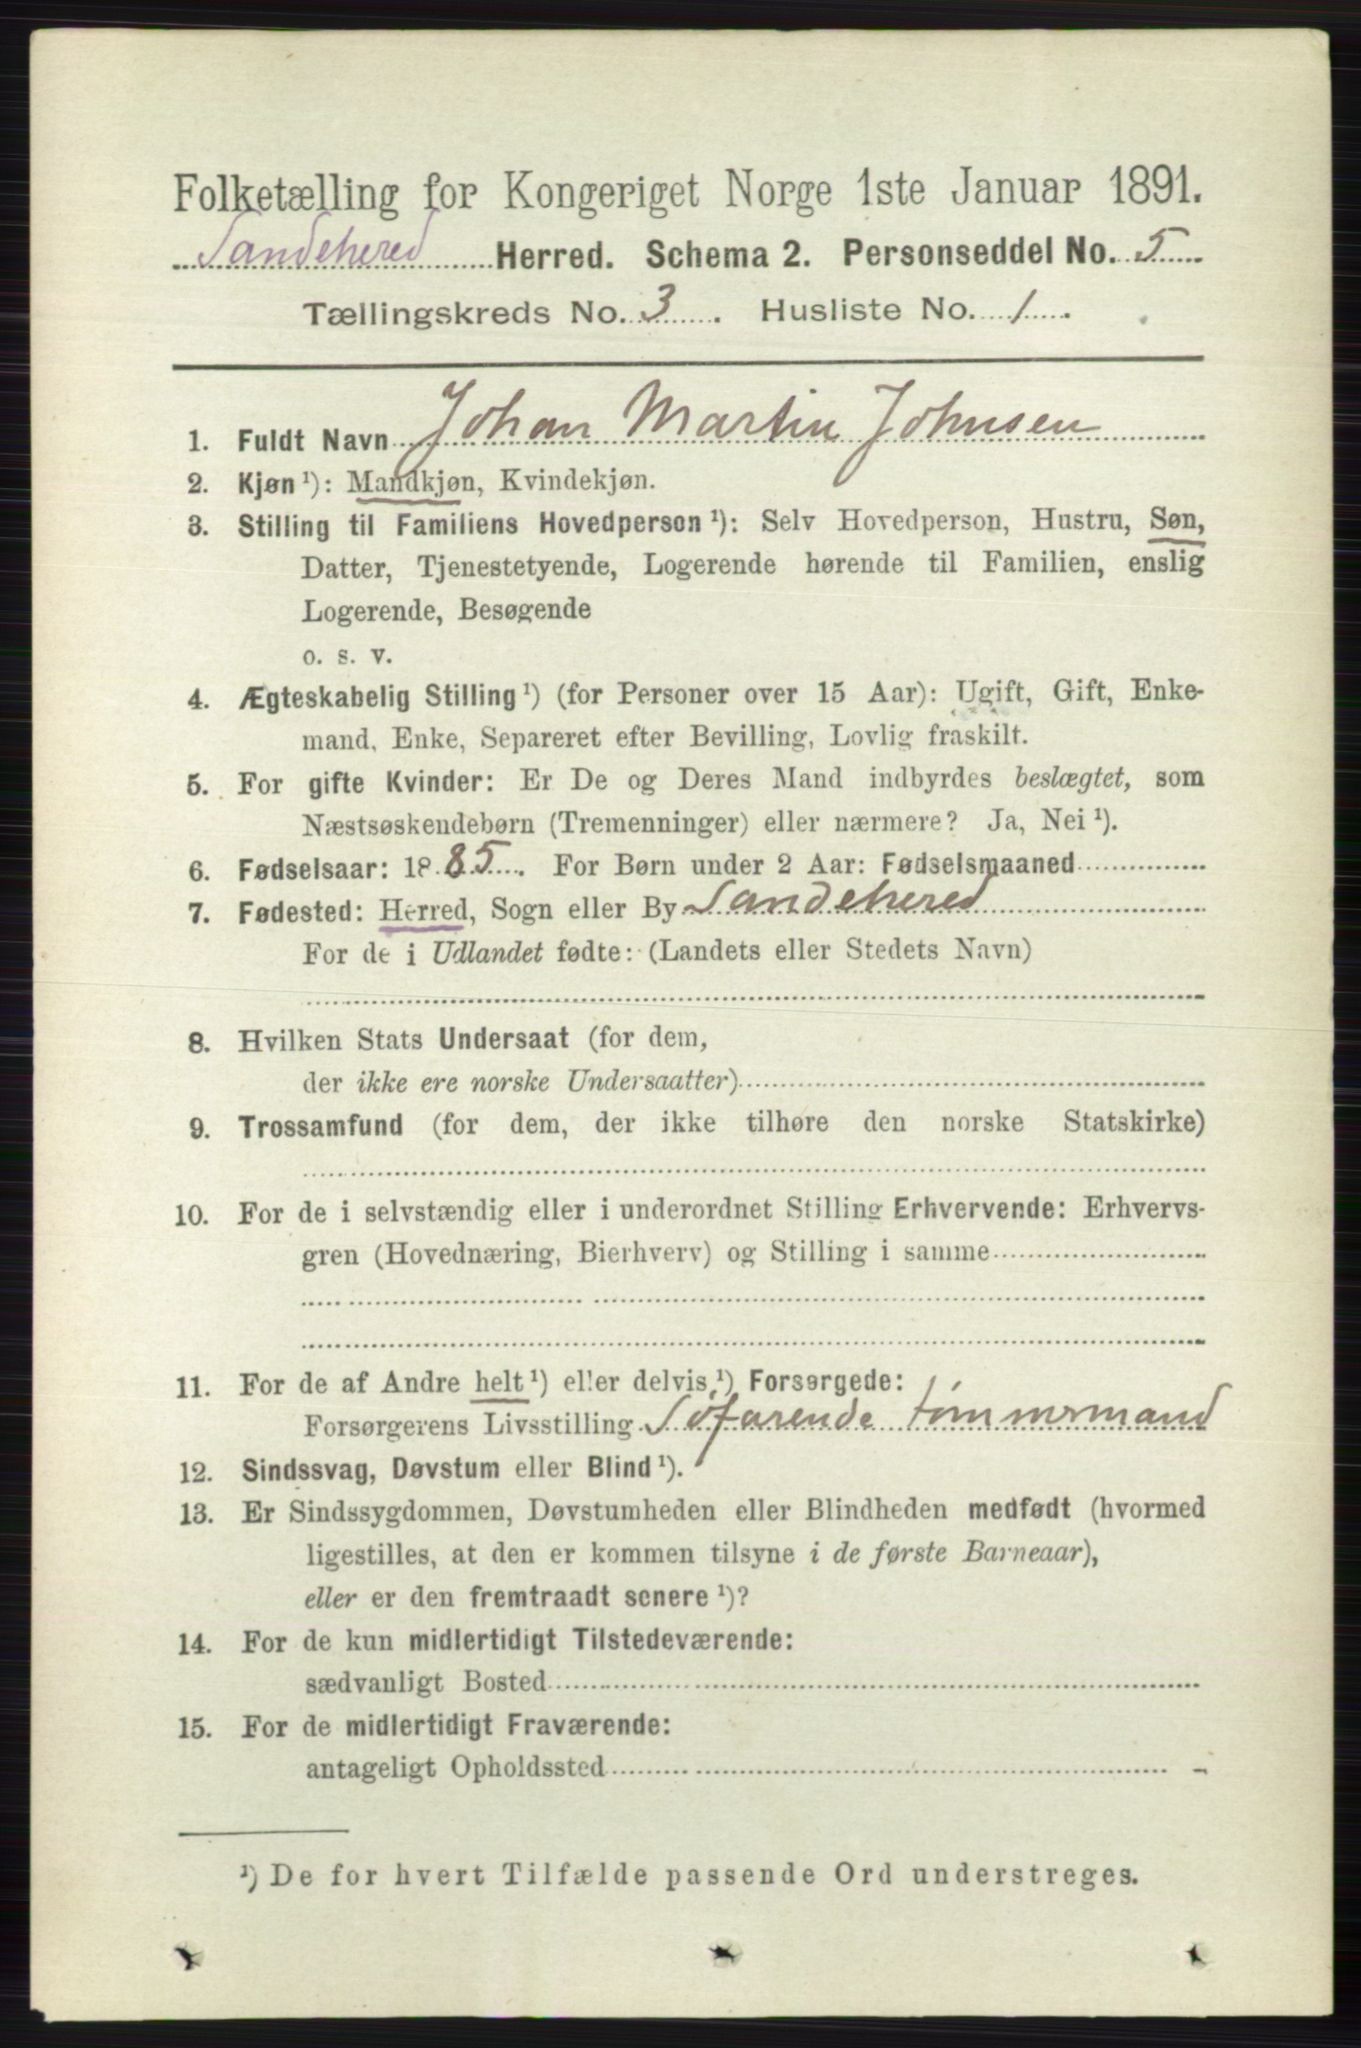 Folketælling for Kongeriget Norge 1ste Januar 1891.
Sandehered Herred. Schema 2. Personseddel No. 5
Tællingskreds No. 3. Husliste No. 1.
1. Fuldt Navn Johan Martin Johnsen
2. Kjøn ¹): Mandkjøn, Kvindekjøn.
3. Stilling til Familiens Hovedperson ¹): Selv Hovedperson, Hustru, Søn,
Datter, Tjenestetyende, Logerende hørende til Familien, enslig
Logerende, Besøgende
o. s. v.
4. Ægteskabelig Stilling ¹) (for Personer over 15 Aar): Ugift, Gift, Enke-
mand, Enke, Separeret efter Bevilling, Lovlig fraskilt.
5. For gifte Kvinder: Er De og Deres Mand indbyrdes beslægtet, som
Næstsøskendebørn (Tremenninger) eller nærmere? Ja, Nei ¹).
6. Fødselsaar: 1885. For Børn under 2 Aar: Fødselsmaaned
7. Fødested: Herred, Sogn eller By Sandehered
For de i Udlandet fødte: (Landets eller Stedets Navn)
8. Hvilken Stats Undersaat (for dem,
der ikke ere norske Undersaatter)
9. Trossamfund (for dem, der ikke tilhøre den norske Statskirke)
10. For de i selvstændig eller i underordnet Stilling Erhvervende: Erhvervs-
gren (Hovednæring, Bierhverv) og Stilling i samme
11. For de af Andre helt ¹) eller delvis ¹) Forsørgede:
Forsørgerens Livsstilling Søfarende tømmermand
12. Sindssvag, Døvstum eller Blind ¹).
13. Er Sindssygdommen, Døvstumheden eller Blindheden medfødt (hvormed
ligestilles, at den er kommen tilsyne i de første Barneaar),
eller er den fremtraadt senere ¹)?
14. For de kun midlertidigt Tilstedeværende:
sædvanligt Bosted
15. For de midlertidigt Fraværende:
antageligt Opholdssted
¹) De for hvert Tilfælde passende Ord understreges.